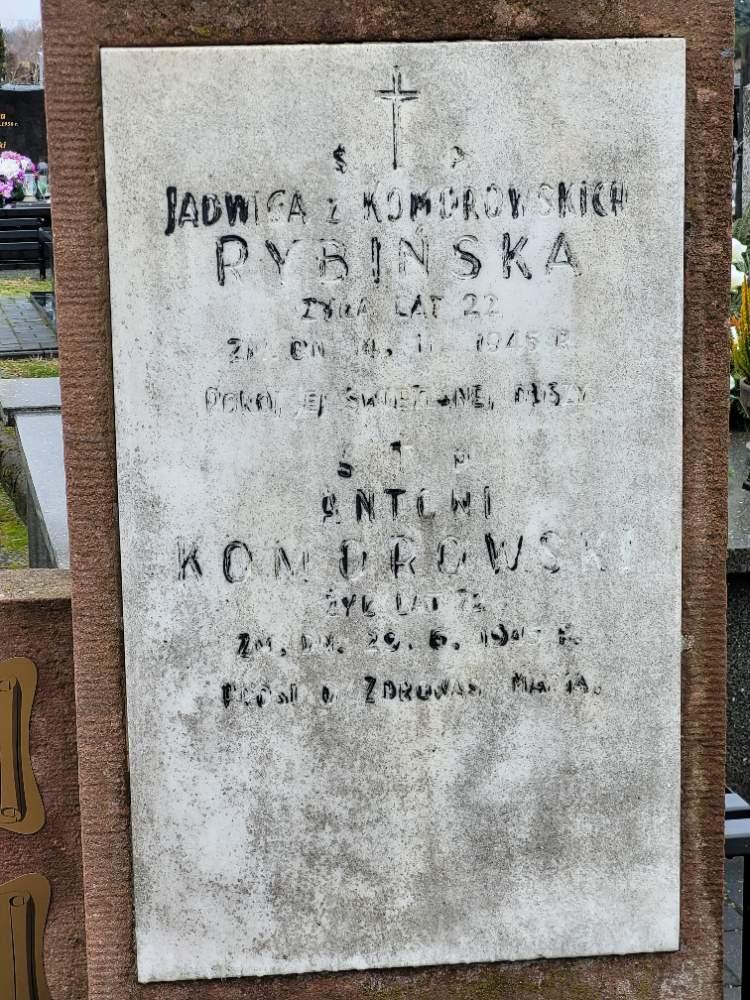 Ś P
JADWIGA z KOMOROWSKICH
RYBIŃSKA
ŻYŁA LAT 22
ZM. DN. 14. 11. 1945 R.
POKÓJ JEJ DUSZY
Ś † P
ANTONI
KOMOROWSKI
ŻYŁ LAT 72
ZM. DN. 29. 6. R.
PROSI O ZDROWAŚ MARIA.